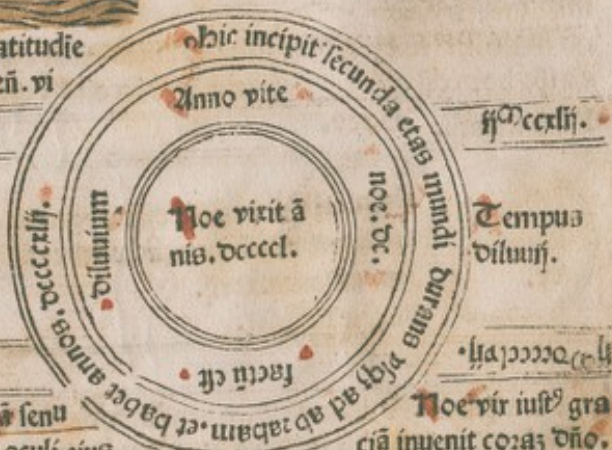 atitudīe
eñ. vi
hic incipit secunda etas mundi durans vsqʒ ad abraham. et habet annos. dccccxlij.
Anno vite
noe. dc.
factū est
diluuium
Noe vixit ā
nis. dccccl.
ijᴹccxlij.
Tempus
diluuij.
Noe vir iustꝰ gra
ciā inuenit coraʒ dño.
senu
oculi eius